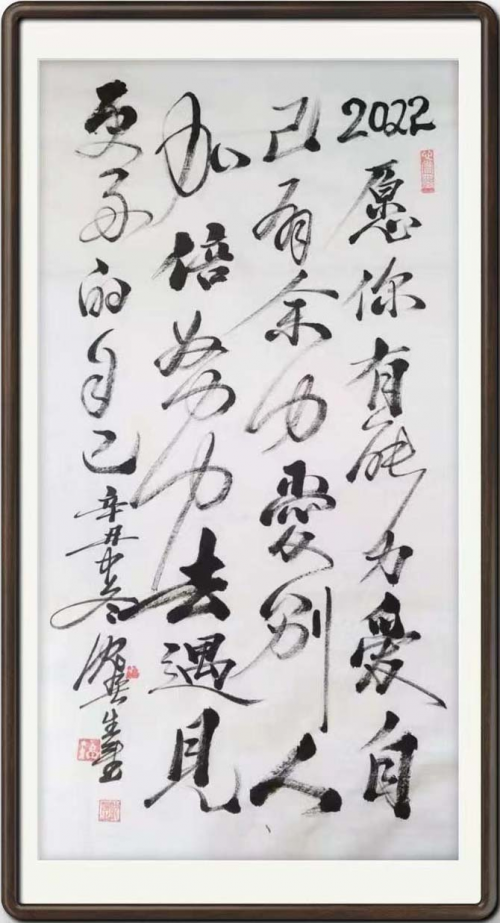 2022愿你有能力愛自
己有余力愛别人
加倍努力去遇见
更好的自己 辛丑冬